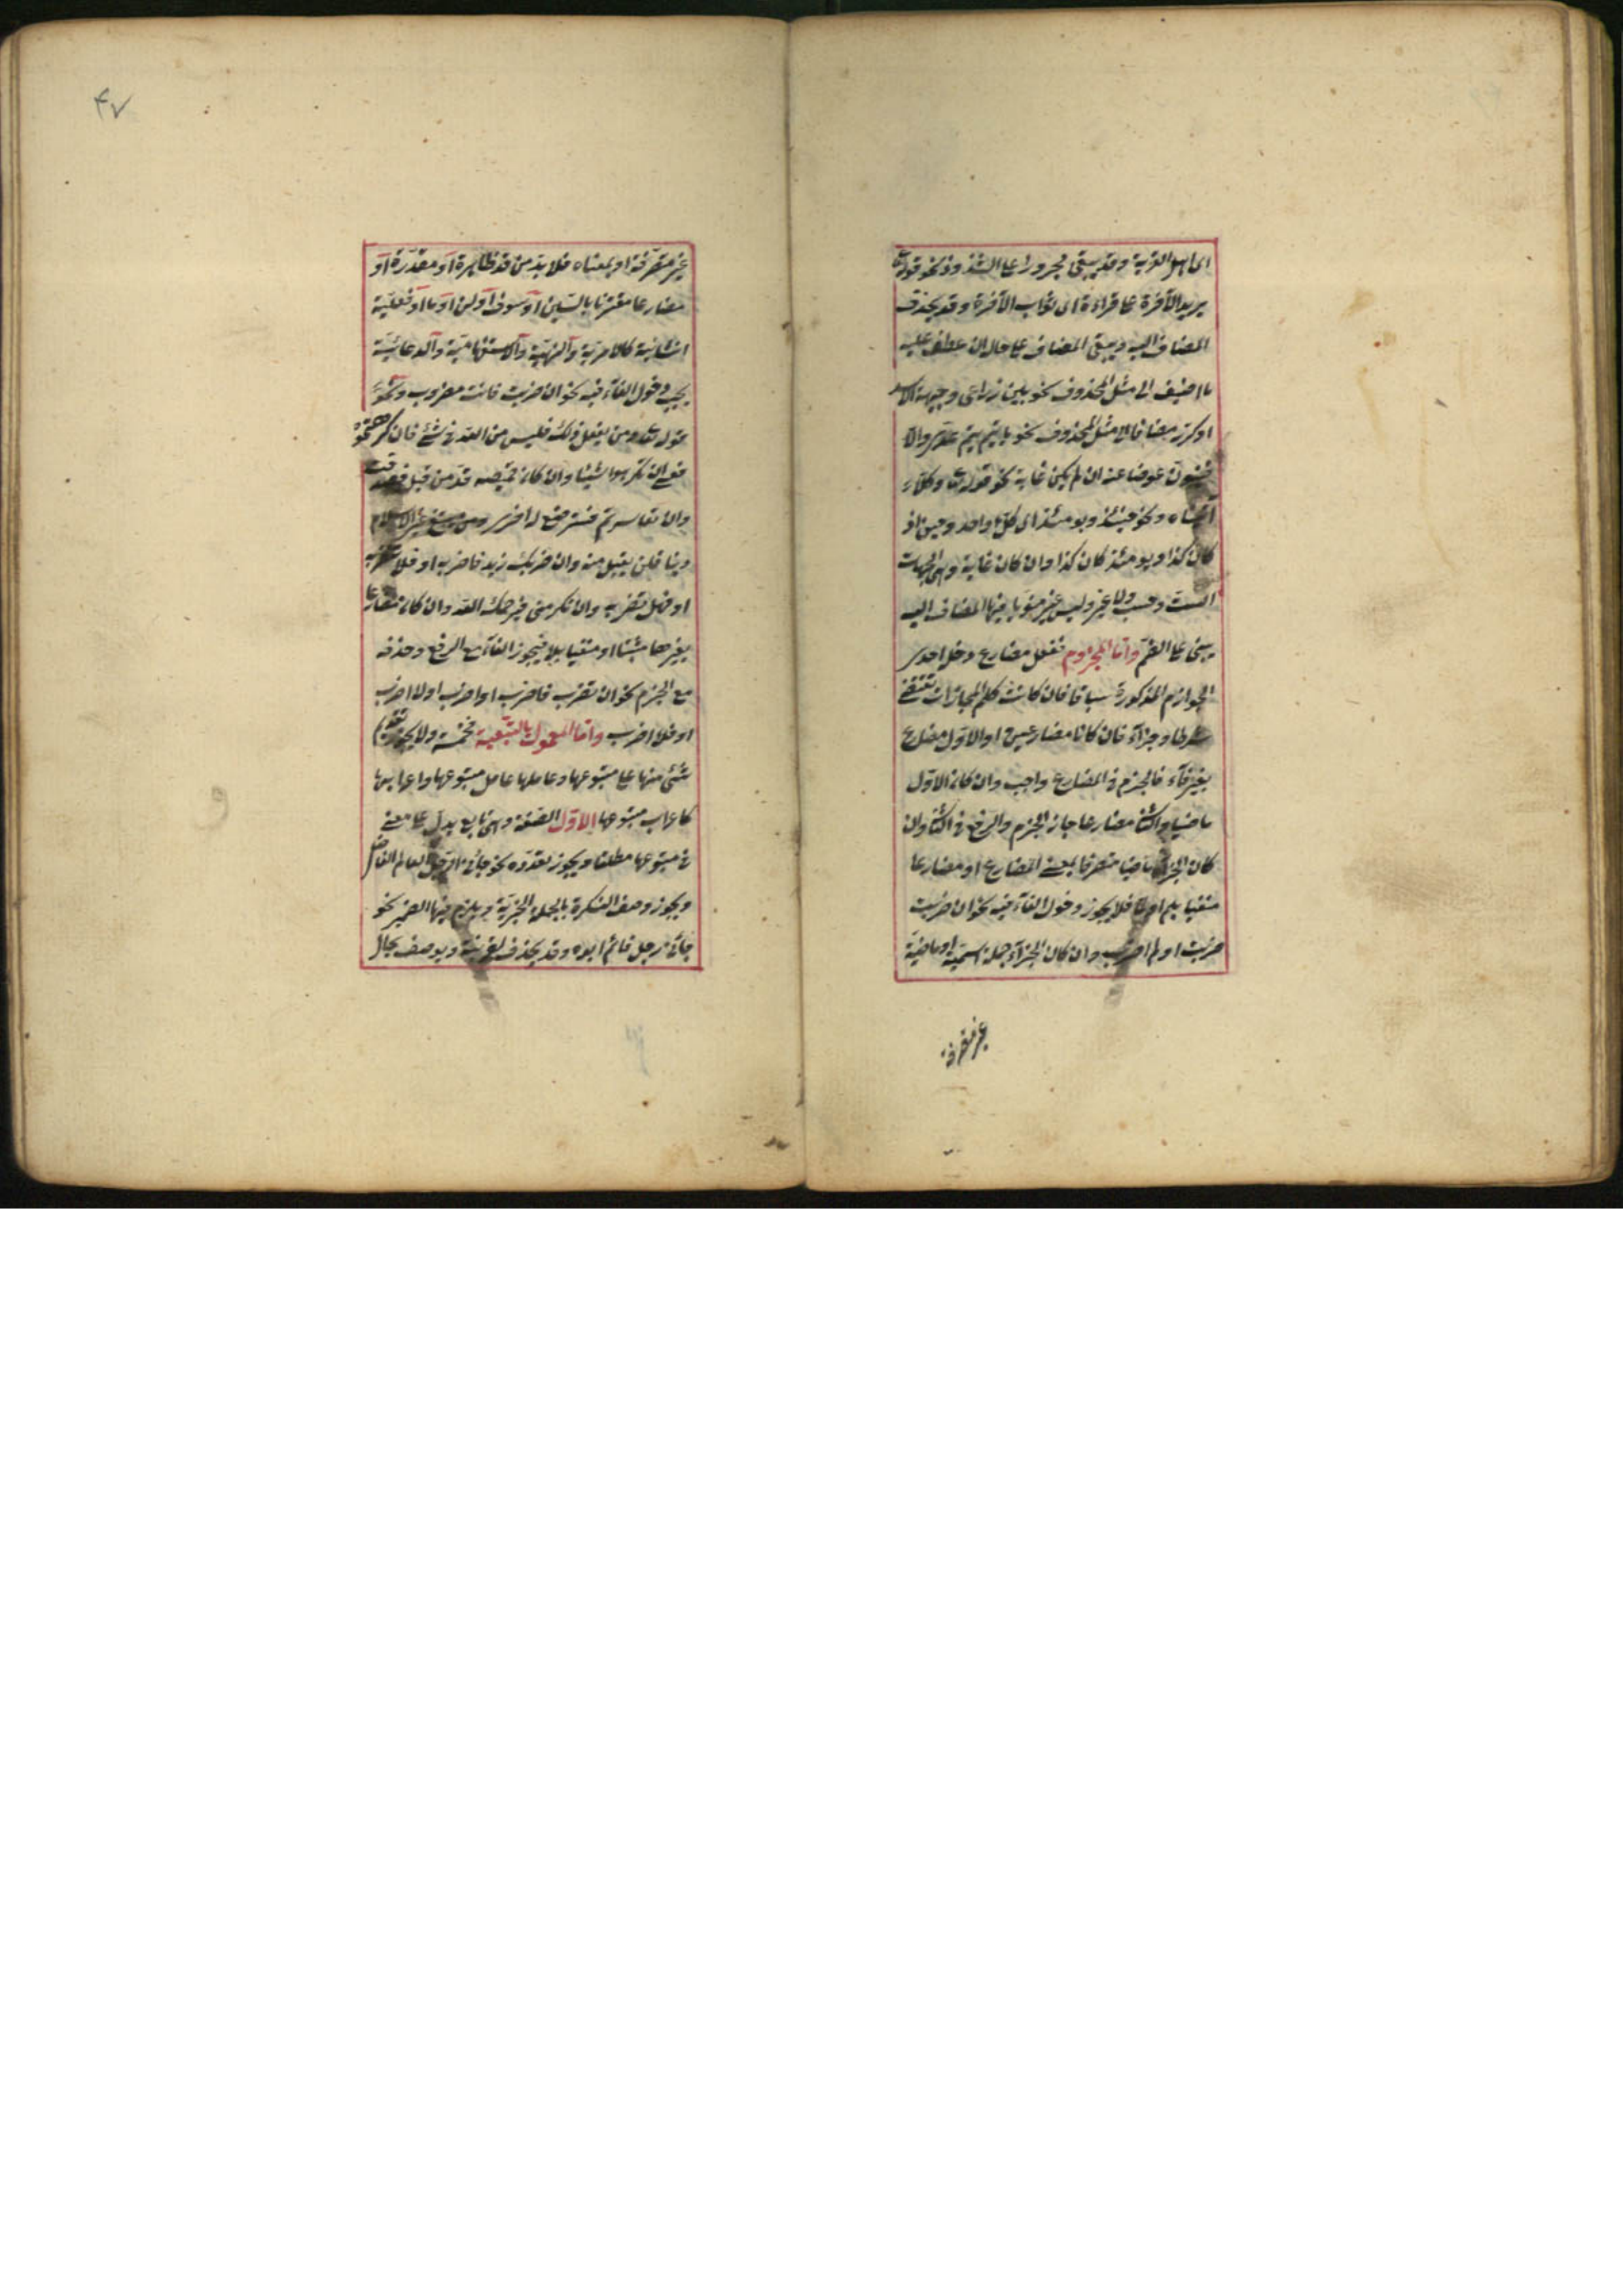 اى اهل القرية وقد يبقى مجرورا على الشذوذ نحو قوله تعا
يريد الآخرة على قراءة اى ثواب الآخرة وقد يحذف
المضاف اليه ويبقى المضاف على حاله ان عطف عليه
ما اضيف الى مثل المحذوف نحو بين ذراعى وجبهة الاسد
او كرر مضافا الى مثل المحذوف نحو يا تيم تيم عدى والا
فينون عوضا عنه ان لم يكن غاية نحو قوله تعا وكلا
آتيناه ونحو حينئذ ويومئذ اى كل واحد وحين اذ
كان كذا ويوم اذ كان كذا وان كان غاية وهى الجهات
الست وحسب ولا غير وليس غير منويا فيها المضاف اليه
يبنى على الضم واما المجزوم ففعل مضارع دخله احدى
الجوازم المذكورة سابقا فان كانت كلم المجازات تقتضى
شرطا وجزآء فان كانا مضارعين او الاول مضارع
بغير فآء فالجزم فى المضارع واجب وان كان الاول
ماضيا والثا مضارعا جاز الجزم والرفع فى الثا وان
كان الجزآء ماضيا متصرفا بمعنى المضارع او مضارعا
منفيا بلم او لما فلا يجوز دخول الفآء فيه نحو ان ضربت
ضربت او لم اضرب وان كان الجزآء جملة اسمية او ماضية
غير متصرفة
٤٧
غير متصرفة او بمعناه فلا بد من قد ظاهرة او مقدرة او
مضارعا مقترنا بالسين او سوف او لن او ما او فعلية
انشائية كالامرية والنهيية والاستفهامية والدعائية
يجب دخول الفآء فيه نحو ان ضربت فانت مضروب ونحو
قوله تعا ومن يفعل ذلك فليس من الله فى شئ فان كرهتموهن
فعسى ان تكرهوا شيئا وان كان قميصه قد من قبل فصدقت
وان تعاسرتم فسترضع له اخرى ومن يبتغ غير الاسلام
دينا فلن يقبل منه وان ضربك زيد فاضربه او فلا تضربه
او فهل تضربه وان تكرمنى فيرحمك الله وان كان مضارعا
بغيرها مثبتا او منفيا بلا فيجوز الفآء مع الرفع وحذفه
مع الجزم نحو ان تضرب فاضرب او اضرب او لا اضرب
او فلا اضرب واما المعمول بالتبعية فخمسة ولا يجوز تقديم
شئ منها على متبوعها وعاملها عامل متبوعها واعرابها
كاعراب متبوعها الاول الصفة وهى تابع يدل على معنى
فى متبوعها مطلقا ويجوز تعدده نحو جائنى الرجل العالم الفاضل
ويجوز وصف النكرة بالجملة الخبرية ويلزم فيها الضمير نحو
جائنى رجل قائم ابوه وقد يحذف لقرينة ويوصف بحال